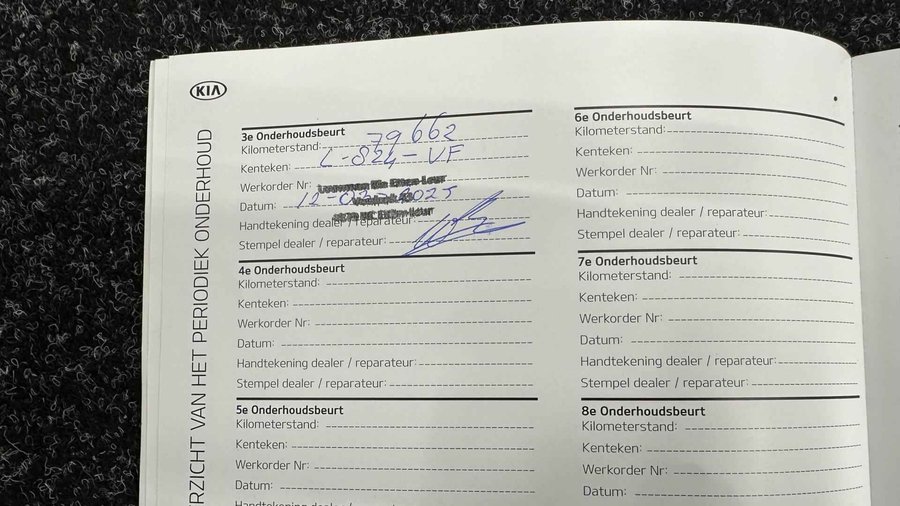 KIA
RZICHT VAN HET PERIODIEK ONDERHOUD
3e Onderhoudsbeurt
Kilometerstand: 79662
Kenteken: L-824-VF
Werkorder Nr:
Datum: 12-03-2025
Handtekening dealer / reparateur:
Stempel dealer / reparateur:
4e Onderhoudsbeurt
Kilometerstand:
Kenteken:
Werkorder Nr:
Datum:
Handtekening dealer / reparateur:
Stempel dealer / reparateur:
5e Onderhoudsbeurt
Kilometerstand:
Kenteken:
Werkorder Nr:
Datum:
6e Onderhoudsbeurt
Kilometerstand:
Kenteken:
Werkorder Nr:
Datum:
Handtekening dealer / reparateur:
Stempel dealer / reparateur:
7e Onderhoudsbeurt
Kilometerstand:
Kenteken:
Werkorder Nr:
Datum:
Handtekening dealer / reparateur:
Stempel dealer / reparateur:
8e Onderhoudsbeurt
Kilometerstand:
Kenteken:
Werkorder Nr:
Datum: